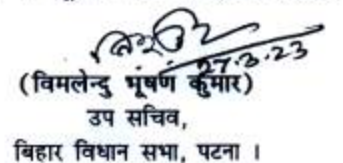 27.3.23
(विमलेन्दु भूषण कुमार)
उप सचिव,
बिहार विधान सभा, पटना ।